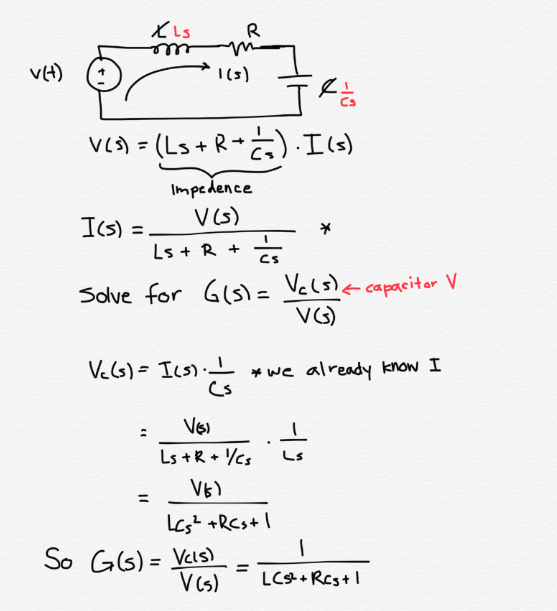 L Ls R
V(t) + - I(s) C 1/Cs
V(s) = (Ls + R + 1/Cs) · I(s)
Impedence
I(s) = V(s) / Ls + R + 1/Cs *
Solve for G(s) = Vc(s) / V(s) ← capacitor V
Vc(s) = I(s) · 1/Cs * we already know I
= V(s) / Ls + R + 1/Cs · 1/Ls
= V(s) / LCs² + RCs + 1
So G(s) = Vc(s) / V(s) = 1 / LCs² + RCs + 1